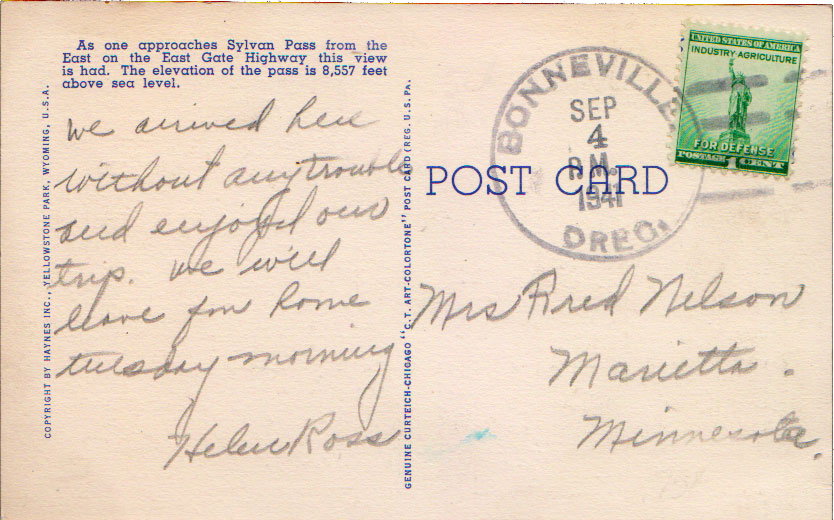 As one approaches Sylvan Pass from the
East on the East Gate Highway this view
is had. The elevation of the pass is 8,557 feet
above sea level.
We arrived here
without any trouble
and enjoyed our
trip. We will
leave for home
tuesday morning
Helen Ross
COPYRIGHT BY HAYNES INC., YELLOWSTONE PARK, WYOMING, U.S.A.
GENUINE CURTEICH-CHICAGO "C.T. ART-COLORTONE" POST CARD (REG. U.S. PA.
POST CARD
BONNEVILLE
SEP
4
P.M.
1941
OREG.
UNITED STATES OF AMERICA
INDUSTRY·AGRICULTURE
FOR DEFENSE
POSTAGE 1 CENT
Mrs Fred Nelson
Marietta.
Minnesota.